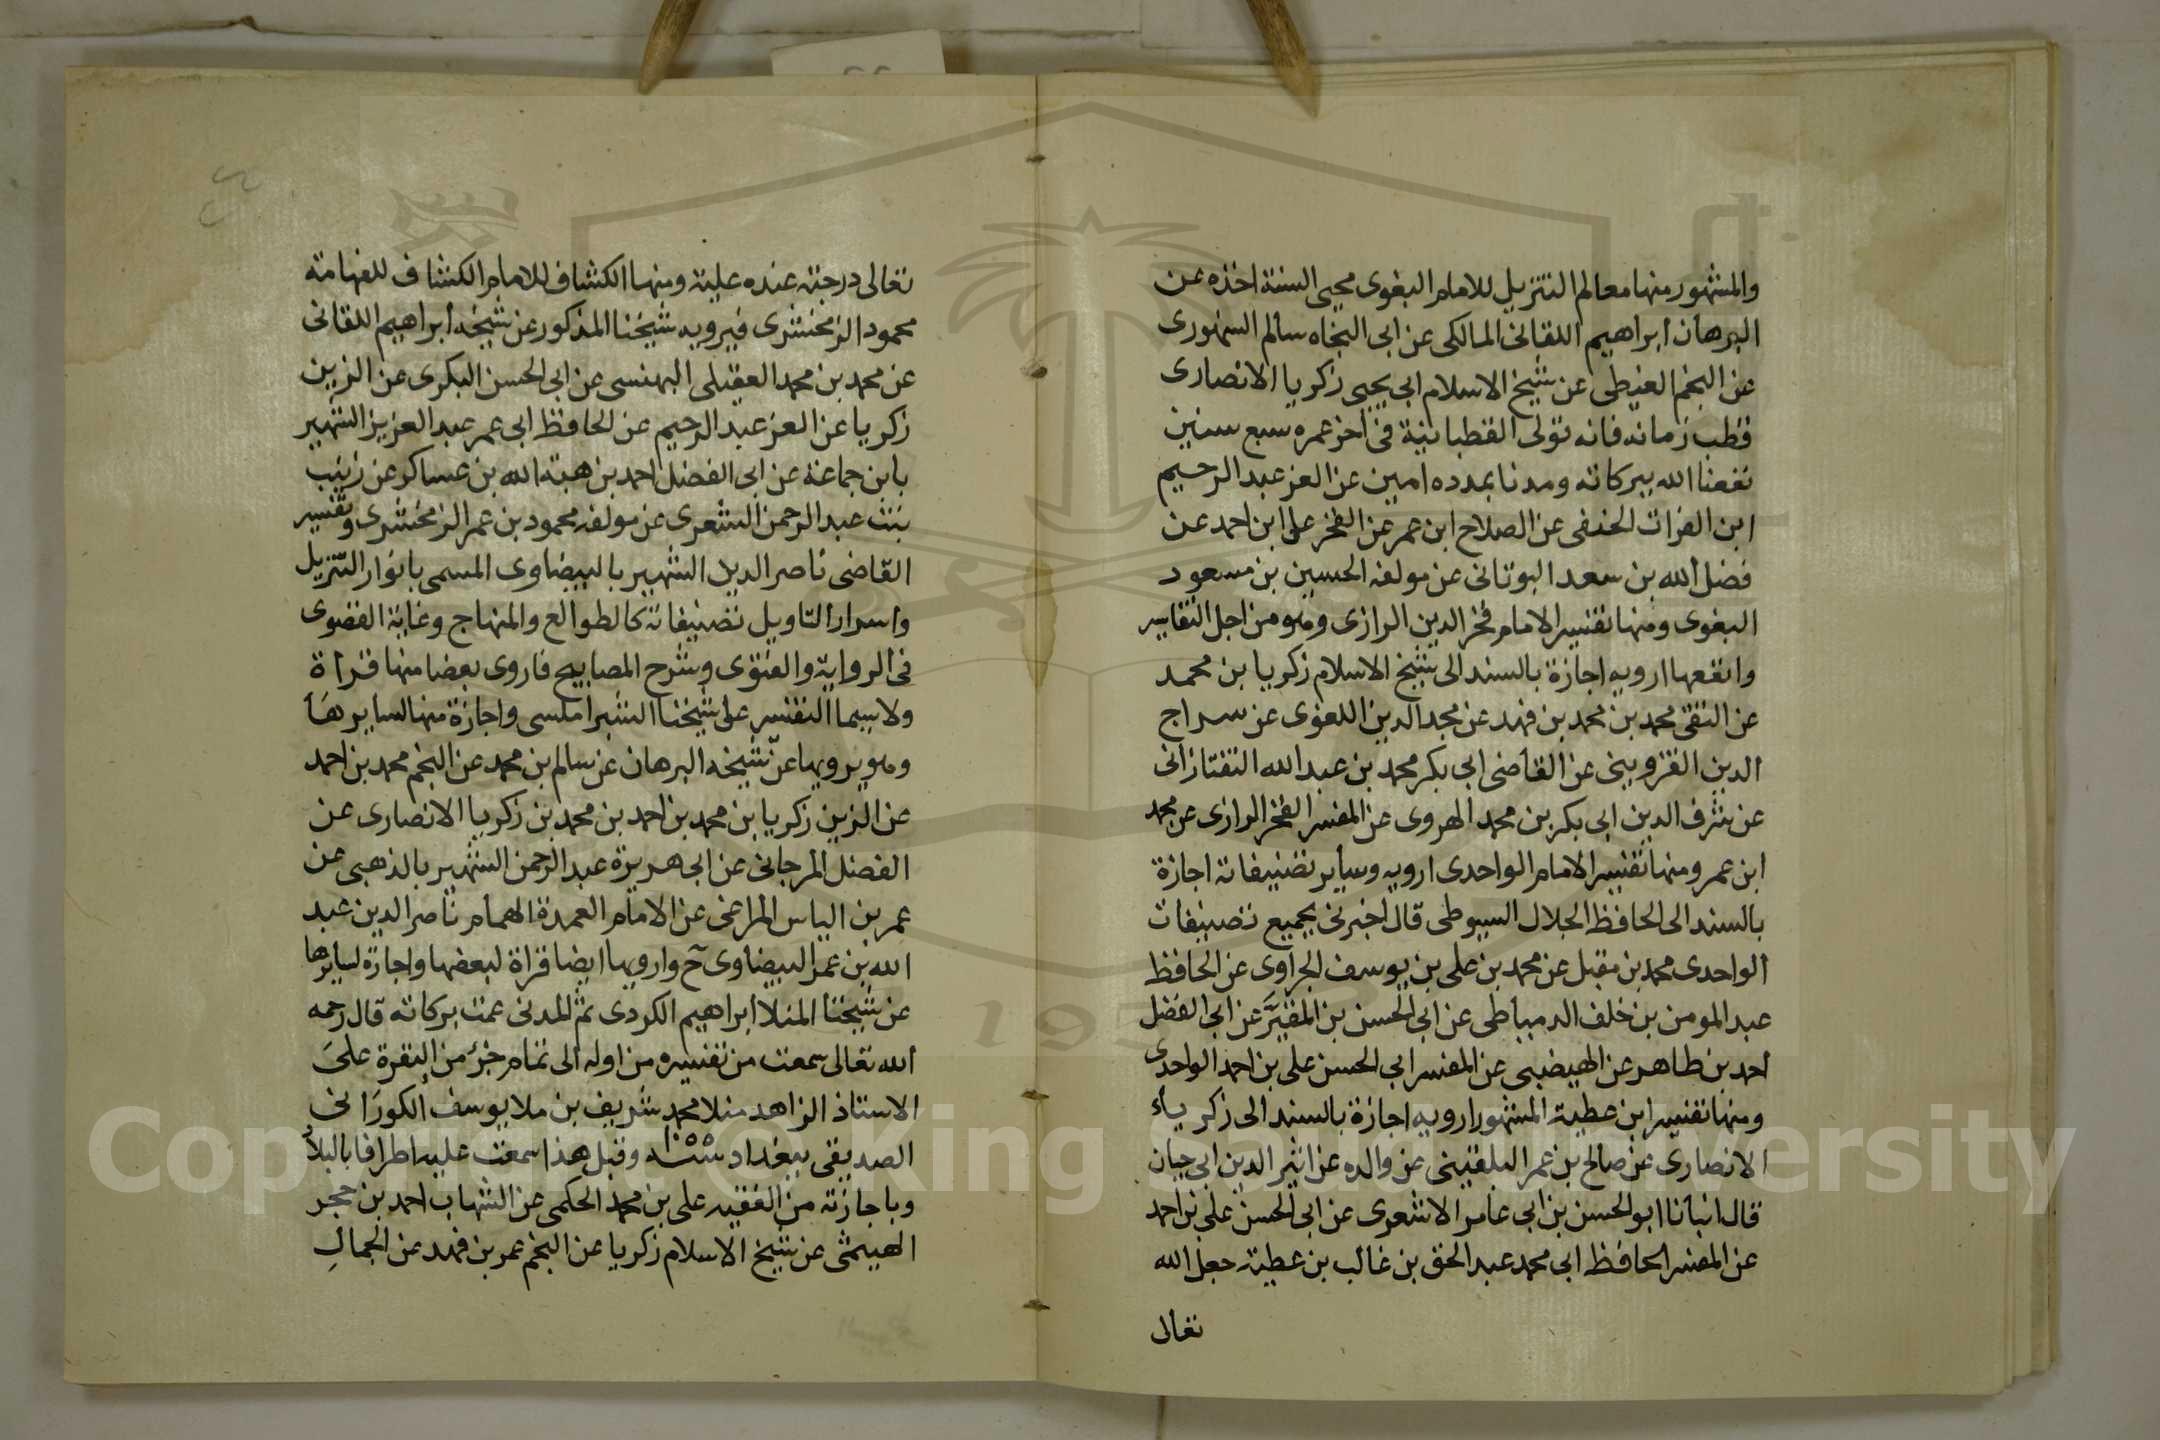 والمشهور منها معالم التنزيل للامام البغوى محيى السنة اخذه عن
البرهان ابراهيم اللقانى المالكى عن ابى النجاه سالم السنهورى
عن النجم الغيطى عن شيخ الاسلام ابى يحيى زكريا الانصارى
قطب زمانه فانه تولى القطبانية فى اخر عمره سبع سنين
نفعنا الله ببركاته ومدنا بمدده امين عن العز عبد الرحيم
ابن الفرات الحنفى عن الصلاح ابن عمر عن الفخر على ابن احمد عن
فضل الله بن سعد البوتانى عن مولفه الحسين بن مسعود
البغوى ومنها تفسير الامام فخر الدين الرازى وهو من اجل التفاسير
وانفعها ارويه اجازة بالسند الى شيخ الاسلام زكريا بن محمد
عن التقى محمد بن محمد بن فهد عن مجد الدين اللغوى عن سراج
الدين القزوينى عن القاضى ابى بكر محمد بن عبد الله التفتازانى
عن شرف الدين ابى بكر بن محمد الهروى عن المفسر الفخر الرازى عن محمد
ابن عمر ومنها تفسير الامام الواحدى ارويه وساير تصنيفاته اجازة
بالسند الى الحافظ الجلال السيوطى قال اخبرنى بجميع تصنيفات
الواحدى محمد بن مقبل عن محمد بن على بن يوسف الجراوى عن الحافظ
عبد المومن بن خلف الدمياطى عن ابى الحسن بن المقيَّر عن ابى الفضل
احمد بن طاهر عن الهيضبى عن المفسر ابى الحسن على بن احمد الواحدى
ومنها تفسير ابن عطية المشهور ارويه اجازة بالسند الى زكرياء
الانصارى عن صالح بن عمر البلقينى عن والده عن اثير الدين ابى حيان
قال انبأنا ابو الحسن بن ابى عامر الاشعرى عن ابى الحسن على بن احمد
عن المفسر الحافظ ابى محمد عبد الحق بن غالب بن عطية جعل الله
تعالى
تعالى درجته عنده علية ومنها الكشاف للامام الكشاف للفهامة
محمود الزمخشرى فيرويه شيخنا المذكور عن شيخه ابراهيم اللقانى
عن محمد بن محمد العقيلى البهنسى عن ابى الحسن البكرى عن الزين
زكريا عن العز عبد الرحيم عن الحافظ ابى عمر عبد العزيز الشهير
بابن جماعة عن ابى الفضل احمد بن هبة الله بن عساكر عن زينب
بنت عبد الرحمن الشعرى عن مولفه محمود بن عمر الزمخشرى وتفسير
القاضى ناصر الدين الشهير بالبيضاوى المسمى بانوار التنزيل
واسرار التاويل تصنيفاته كالطوالع والمنهاج وغاية القصوى
فى الرواية والفتوى وشرح المصابيح فاروى بعضا منها قراة
ولا سيما التفسير على شيخنا الشبراملسى واجازة منها لسايرها
وهو يرويها عن شيخه البرهان عن سالم بن محمد عن النجم محمد بن احمد
عن الزين زكريا بن محمد بن احمد بن محمد بن زكريا الانصارى عن
الفضل المرجانى عن ابى هريرة عبد الرحمن الشهير بالذهبى عن
عمر بن الياس المراغى عن الامام العمدة الهمام ناصر الدين عبد
الله بن عمر البيضاوى ح وارويها ايضا قراة لبعضها واجازة لسايرها
عن شيخنا المنلا ابراهيم الكردى ثم المدنى عمت بركاته قال رحمه
الله تعالى سمعت من تفسيره من اوله الى تمام جزء من البقرة على
الاستاذ الزاهد منلا محمد شريف بن ملا يوسف الكورانى
الصديقى ببغداد سنة وقبل هذا سمعت عليه اطرافا بالبلاد
وباجازته من الفقيه على بن محمد الحكمى عن الشهاب احمد بن حجر
الهيثمى عن شيخ الاسلام زكريا عن النجم عمر بن فهد عن الجمال
Copyright © King Saud University